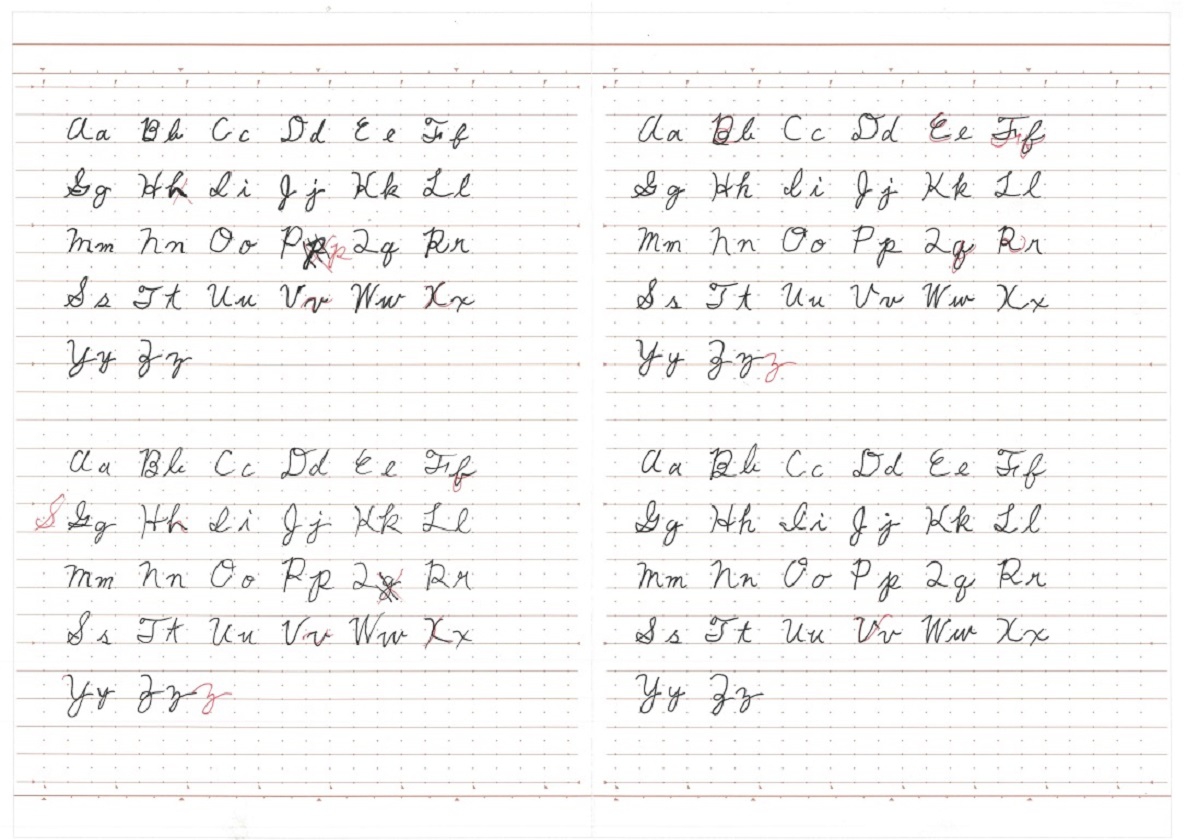 Aa Bb Cc Dd Ee Ff
Gg Hh Ii Jj Kk Ll
Mm Nn Oo Pp p Qq Rr
Ss Tt Uu Vv Ww Xx
Yy Zz
Aa Bb Cc Dd Ee Ff
G Gg Hh Ii Jj Kk Ll
Mm Nn Oo Pp Qq Rr
Ss Tt Uu Vv Ww Xx
Yy Zz z
Aa Bb Cc Dd Ee Ff
Gg Hh Ii Jj Kk Ll
Mm Nn Oo Pp Qq Rr
Ss Tt Uu Vv Ww Xx
Yy Zz z
Aa Bb Cc Dd Ee Ff
Gg Hh Ii Jj Kk Ll
Mm Nn Oo Pp Qq Rr
Ss Tt Uu Vv Ww Xx
Yy Zz